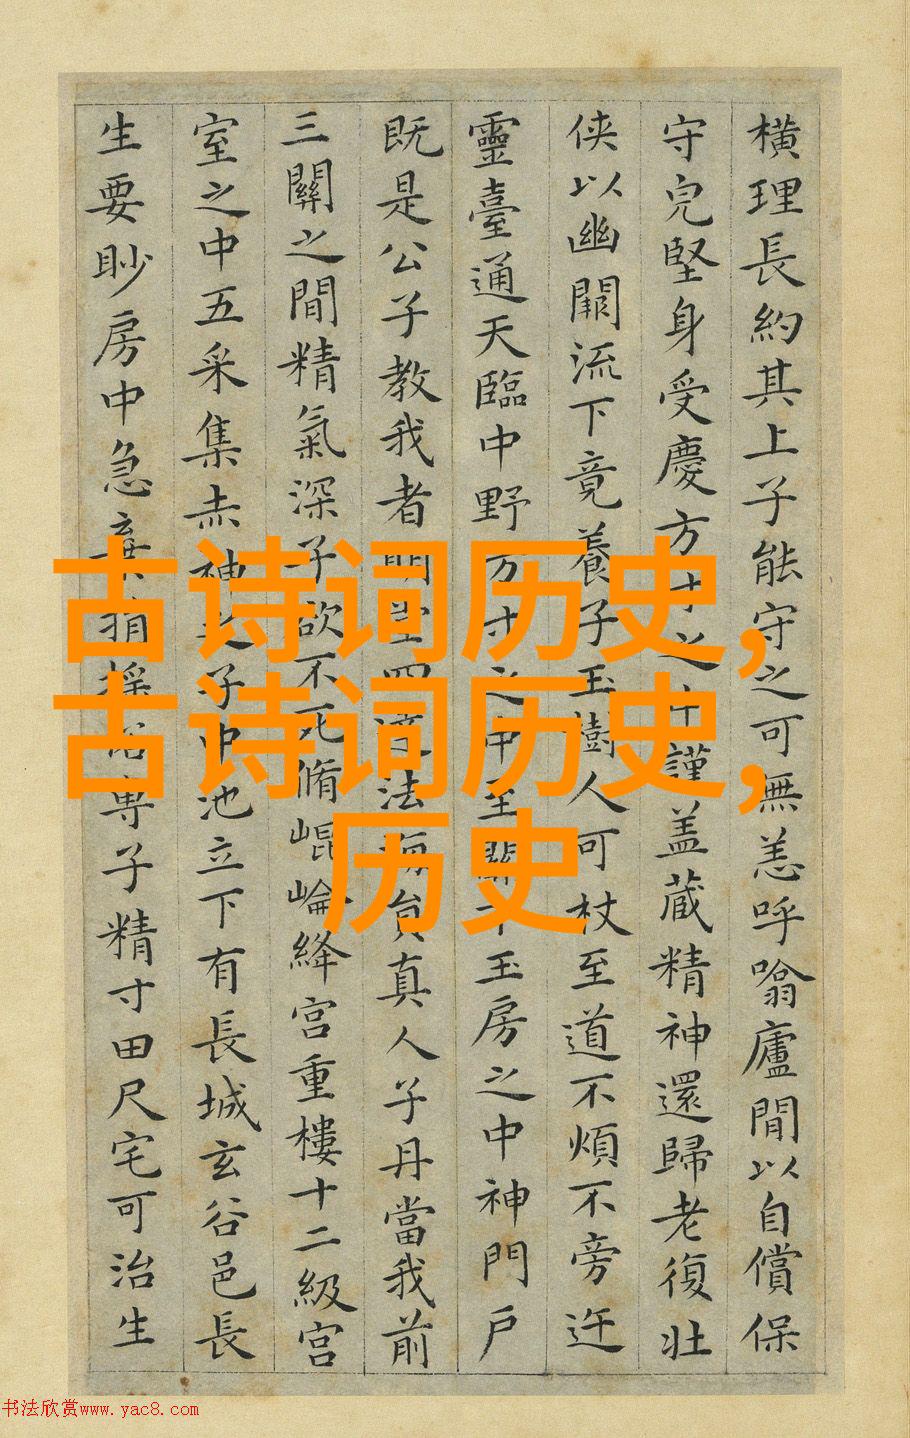 橫理長約其上子能守之可無恙呼噏廬間以自償保
守完堅身受慶方寸之中謹蓋藏精神還歸老復壯
俠以幽闕流下竟養子玉樹人可杖至道不煩不旁迕
靈臺通天臨中野方寸之中至關下玉房之中神門戶
既是公子教我者明堂四達法海員真人子丹當我前
三關之間精氣深子欲不死脩崐崘絳宮重樓十二級宮
室之中五采集赤神之子中池立下有長城玄谷邑長
生要眇房中急棄捐搖俗專子精寸田尺宅可治生
古诗词历史,
古诗词历史,
历史
书法欣赏www.yac8.com